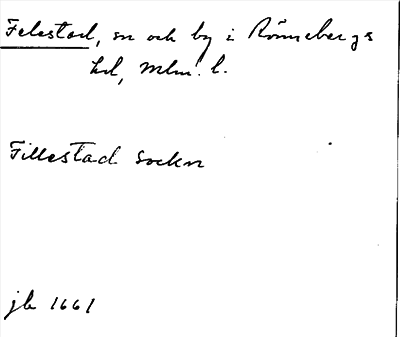 Felestad, sn och by i Rönnebergs
hd, Mlm. l.
Fillestad Sockn
jb 1661